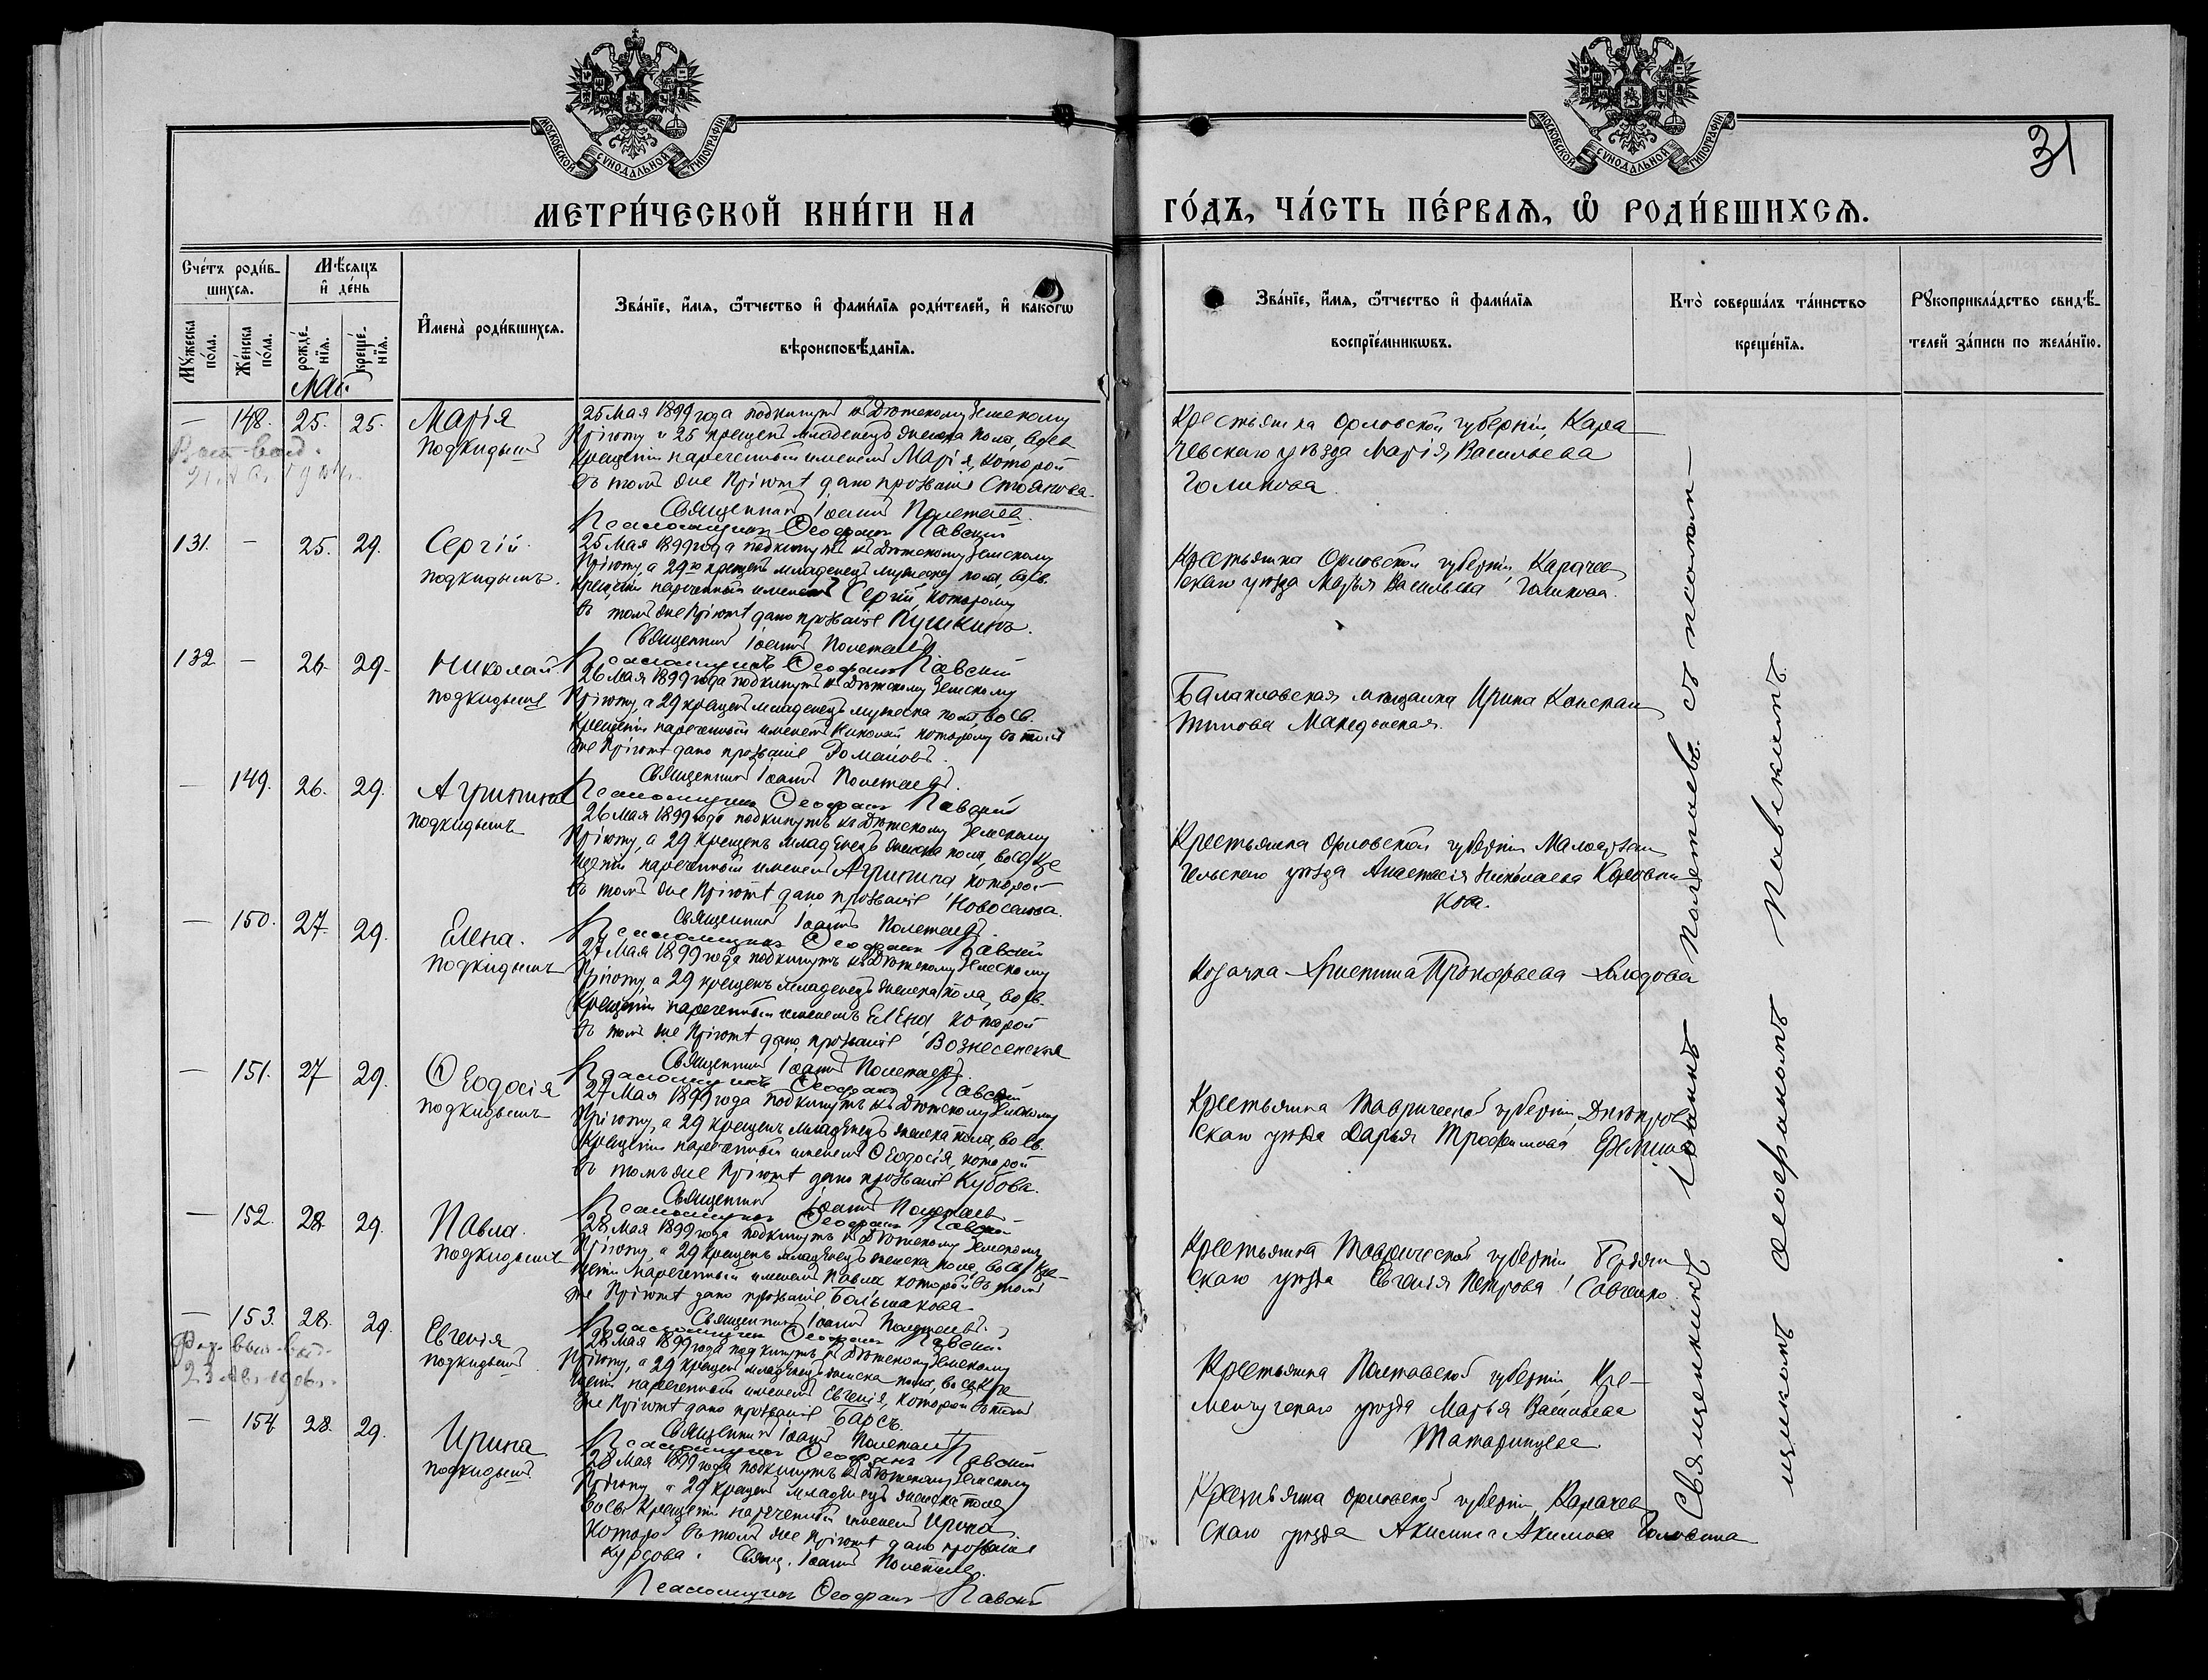 МОСКОВСКОЙ СѴНОДАЛЬНОЙ ТИПОГРАФІИ
МОСКОВСКОЙ СѴНОДАЛЬНОЙ ТИПОГРАФІИ
31
МЕТРИ́ЧЕСКОЙ КНИ́ГИ НА
ГО́ДЪ, ЧА́СТЬ ПЕ́РВАѦ, Ѡ҆ РОДИ́ВШИХСѦ.
Сче́тъ роди́в-
шихсѧ.
Мѣ́сѧцъ
и҆ де́нь
Мꙋ́жеска
по́ла.
Же́нска
по́ла.
рожде́-
нїѧ.
креще́-
нїѧ.
И҆мена̀ роди́вшихсѧ.
Зва́нїе, и҆́мѧ, ѻ҆́тчество и҆ фами́лїѧ роди́телей, и҆ како́гѡ
вѣроисповѣ́данїѧ.
Зва́нїе, и҆́мѧ, ѻ҆́тчество и҆ фами́лїѧ
воспрїе́мникѡвъ.
Кто̀ соверша́лъ та́инство
креще́нїѧ.
Рꙋкоприкла́дство свидѣ́-
телей за́писи по жела́нїю.
Май
— 148. 25. 25. Марія
подкидышъ
25 Мая 1899 года подкинутъ къ Дѣтскому Земскому
Пріюту и 25 крещенъ младенецъ женска пола, во св.
Крещеніи нареченный именемъ Марія, которой
въ томъ же Пріютѣ дано прозваніе Стоянова.
Священникъ Іоаннъ Полетаевъ.
Псаломщикъ Ѳеофанъ Павскій
Крестьянка Орловской губерніи, Кара-
чевскаго уѣзда Марія Васильева
Голикова
131. — 25. 29. Сергій
подкидышъ.
25 Мая 1899 года подкинутъ къ Дѣтскому Земскому
Пріюту, а 29го крещенъ младенецъ мужеска пола, во св.
Крещеніи нареченный именемъ Сергій, которому
въ томъ же Пріютѣ дано прозваніе Пушкинъ.
Священникъ Іоаннъ Полетаевъ
Псаломщикъ Ѳеофанъ Павскій
Крестьянка Орловской губерніи, Карачев
скаго уѣзда Марья Васильева Голикова.
132 — 26. 29. Николай.
подкидышъ
26 Мая 1899 года подкинутъ къ Дѣтскому Земскому
Пріюту, а 29 крещенъ младенецъ мужеска пола, во св.
Крещеніи нареченный именемъ Николай которому въ томъ
же Пріютѣ дано прозваніе Романовъ.
Священникъ Іоаннъ Полетаевъ.
Псаломщикъ Ѳеофанъ Павскій
Балаклавская мѣщанка Ирина Констан
тинова Македонская.
— 149. 26. 29. Агрипина
подкидышъ
26 Мая 1899 года подкинутъ къ Дѣтскому Земскому
Пріюту, а 29 крещенъ младенецъ женска пола, во св. Кре
щеніи нареченный именемъ Агрипина которой
въ томъ же Пріютѣ дано прозваніе Новоселова.
Священникъ Іоаннъ Полетаевъ.
Псаломщикъ Ѳеофанъ Павскій
Крестьянка Орловской губерніи Малоархан
гельскаго уѣзда Анастасія Николаева
кова.
— 150. 27. 29. Елена.
подкидышъ
27 Мая 1899 года подкинутъ къ Дѣтскому Земскому
Пріюту, а 29 крещенъ младенецъ женска пола, во св.
Крещеніи нареченный именемъ Елена которой
въ томъ же Пріютѣ дано прозваніе Вознесенская
Священникъ Іоаннъ Полетаевъ.
Псаломщикъ Ѳеофанъ Павскій
Козачка Христина Прокофьева
— 151. 27 29. Ѳеодосія
подкидышъ
27 Мая 1899 года подкинутъ къ Дѣтскому Земскому
Пріюту, а 29 крещенъ младенецъ женска пола, во св.
Крещеніи нареченный именемъ Ѳеодосія, которой
въ томъ же Пріютѣ дано прозваніе Кубова.
Священникъ Іоаннъ Полетаевъ
Псаломщикъ Ѳеофанъ Павскій
Крестьянка Таврической губерніи, Днѣпров
скаго уѣзда Дарья Трофимова
— 152. 28. 29. Павла.
подкидышъ
28 Мая 1899 года подкинутъ къ Дѣтскому Земскому
Пріюту, а 29 крещенъ младенецъ женска пола, во св. Кре-
щеніи нареченный именемъ Павла которой въ томъ
же Пріютѣ дано прозваніе Большакова
Священникъ Іоаннъ Полетаевъ.
Псаломщикъ Ѳеофанъ Павскій.
Крестьянка Таврической губерніи Бердян
скаго уѣзда Евгенія Петрова Савченко.
— 153. 28. 29. Евгенія
подкидышъ
28 Мая 1899 года подкинутъ къ Дѣтскому Земскому
Пріюту, а 29 крещенъ младенецъ женска пола, во св. Кре
щеніи нареченный именемъ Евгенія, которой въ томъ
же Пріютѣ дано прозваніе Барсъ.
Священникъ Іоаннъ Полетаевъ
Псаломщикъ Ѳеофанъ Павскій
Крестьянка Полтавской губерніи, Кре-
менчугскаго уѣзда Марья Васильева
Татаринцева
— 154 28. 29. Ирина
подкидышъ.
28 Мая 1899 года подкинутъ къ Дѣтскому Земскому
Пріюту а 29 крещенъ младенецъ женска пола
во св. Крещеніи нареченный именемъ Ирина.
которой въ томъ же Пріютѣ дано прозваніе
Курсова. Свящ. Іоаннъ Полетаевъ.
Псаломщикъ Ѳеофанъ Павскій
Крестьянка Орловской губерніи, Карачев
скаго уѣзда Акилина Акимова Головина
Священникъ Іоаннъ Полетаевъ съ псалом-
щикомъ Ѳеофаномъ Павскимъ.